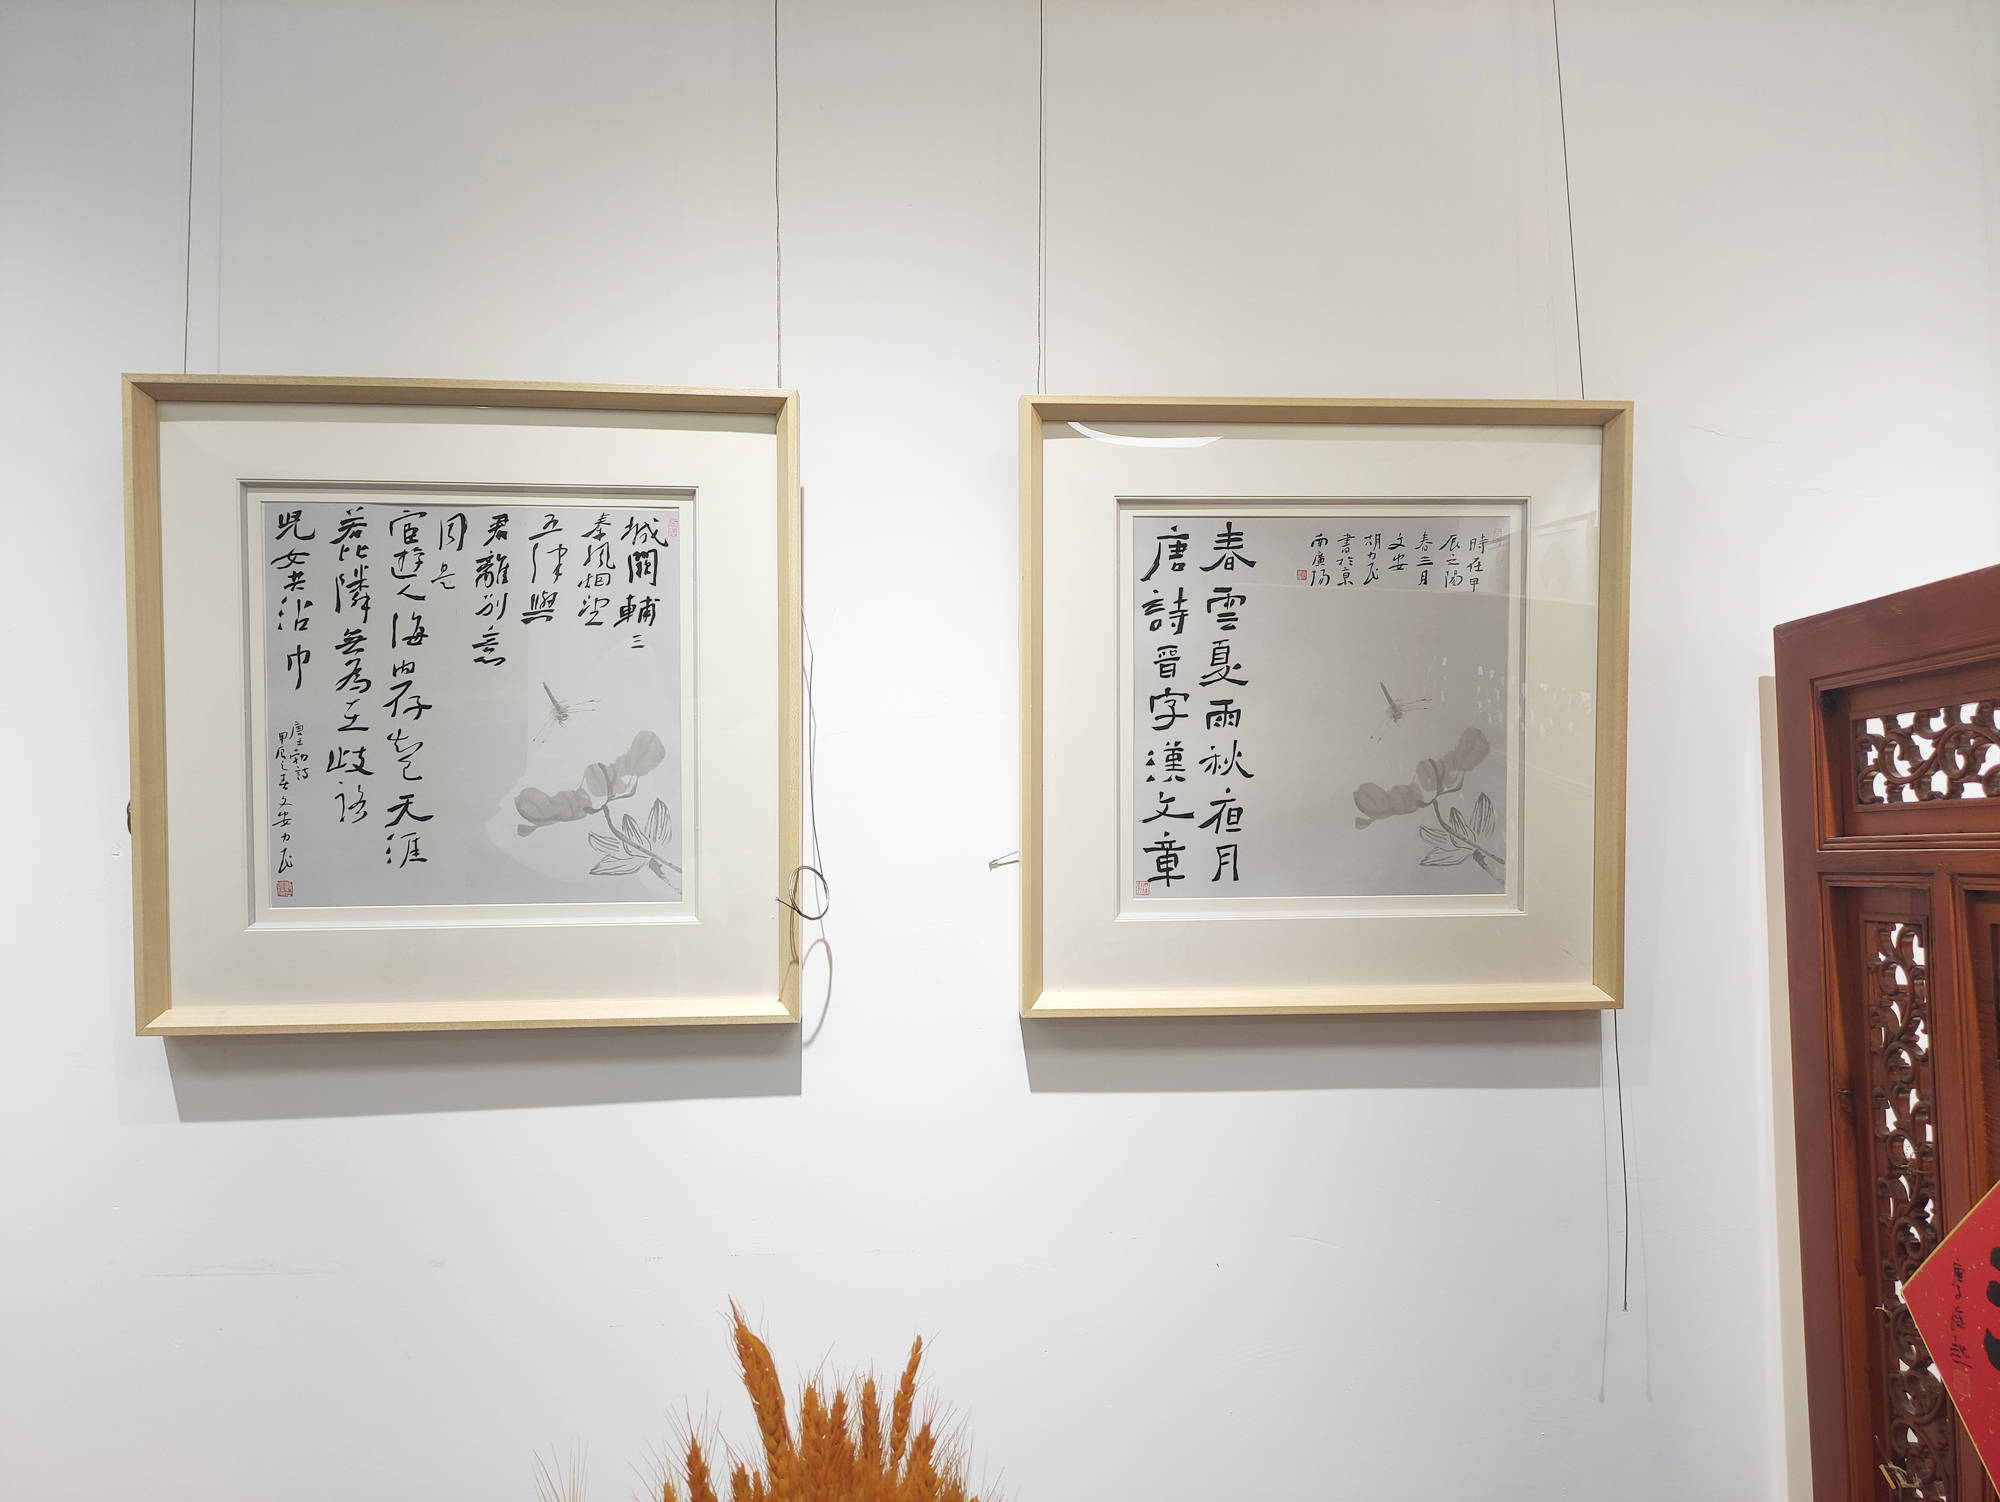 城闕輔三
秦風烟望
五津與
君離別意
同是
宦遊人海內存知己天涯
若比隣無為在歧路
児女共沾巾
唐王勃詩
甲辰之春文安力民
時在甲
辰之陽
春三月
文安
胡力民
書於京
南廣陽
春雲夏雨秋夜月
唐詩晉字漢文章